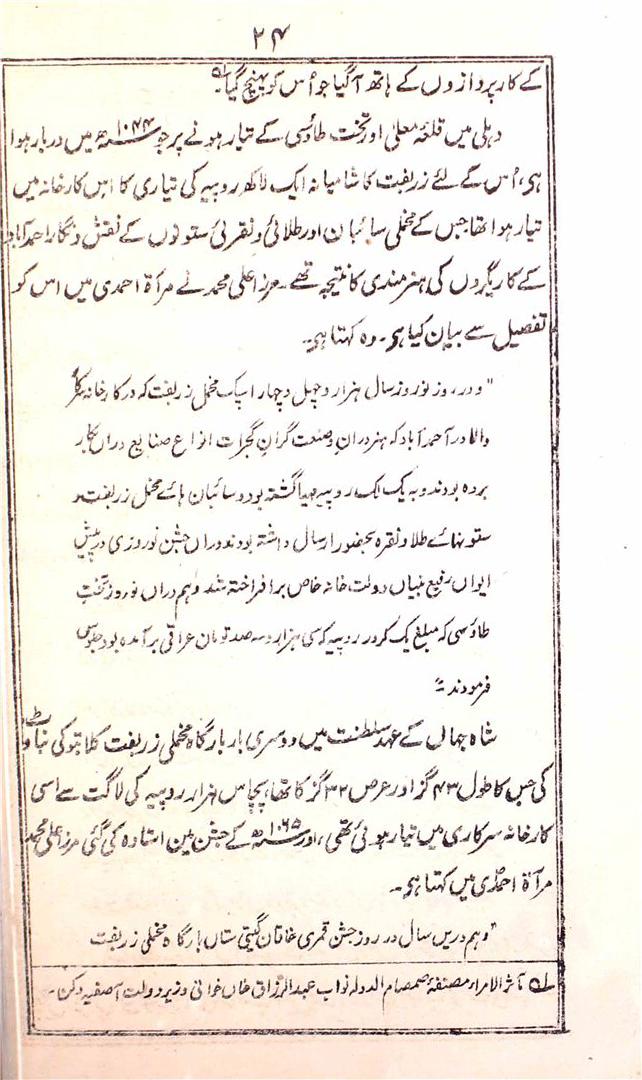 ۲۴
کے کارپردازوں کے ہاتھ آگیا جو اُس کو پہنچ گیا۔ ؎۱
دہلی میں قلعۂ معلیٰ اور تخت طاؤسی کے تیار ہونے پر جو ۱۰۴۴ھ میں دربار ہوا
ہی، اُس کے لئے زربفت کا شامیانہ ایک لاکھ روپیہ کی تیاری کا اس کارخانہ میں
تیار ہوا تھا جس کے مخملی سائبان اور طلائی و نقرئی ستونوں کے نقش و نگار احمدآباد
کے کاریگروں کی ہنرمندی کا نتیجہ تھے۔ مرزا علی محمد نے مرآۃ احمدی میں اس کو
تفصیل سے بیان کیا ہی۔ وہ کہتا ہی۔
"و در روز نوروز سال ہزار و چہل و چہار اسپک مخمل زربفت کہ در کارخانہ سرکار
والا در آحمدآباد کہ ہنردران و صنعت گران گجرات انواع صنایع دراں بکار
بردہ بودند و بہ یک لک روپیہ مہیا گشتہ بود و سائبان ہائے مخمل زربفت و
ستونہائے طلا و نقرہ بحضور ارسال داشتہ بودند دراں جشن نوروزی در پیش
ایوان رفیع بنیاں دولت خانہ خاص برافراختہ شد وہم دراں نوروز تخت
طاؤسی کہ مبلغ یک کرور روپیہ کہ سی ہزار و سہ صد تومان عراقی برآمدہ بود جلوس
فرمودند"
شاہ جہاں کے عہد سلطنت میں دوسری بار بارگاہ مخملی زربفت کلابتو کی بناوٹ
کی جس کا طول ۴۳ گز اور عرض ۳۲ گز کا تھا، پچاس ہزار روپیہ کی لاگت سے اسی
کارخانہ سرکاری میں تیار ہوئی تھی، اور ۱۰۶۵ھ کے جشن میں استادہ کی گئی مرزا علی محمد
مرآۃ احمدی میں کہتا ہی۔
"وہم دریں سال در روز جشن قمری خاقان گیتی ستاں بارگاہ مخملی زربفت
؎۱ مآثر الامراء مصنفۂ صمصام الدولہ نواب عبدالرزاق خاں خوافی وزیر دولت آصفیہ دکن۔